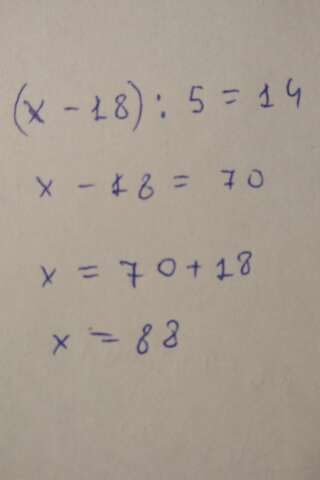 (x - 18) : 5 = 14
x - 18 = 70
x = 70 + 18
x = 88